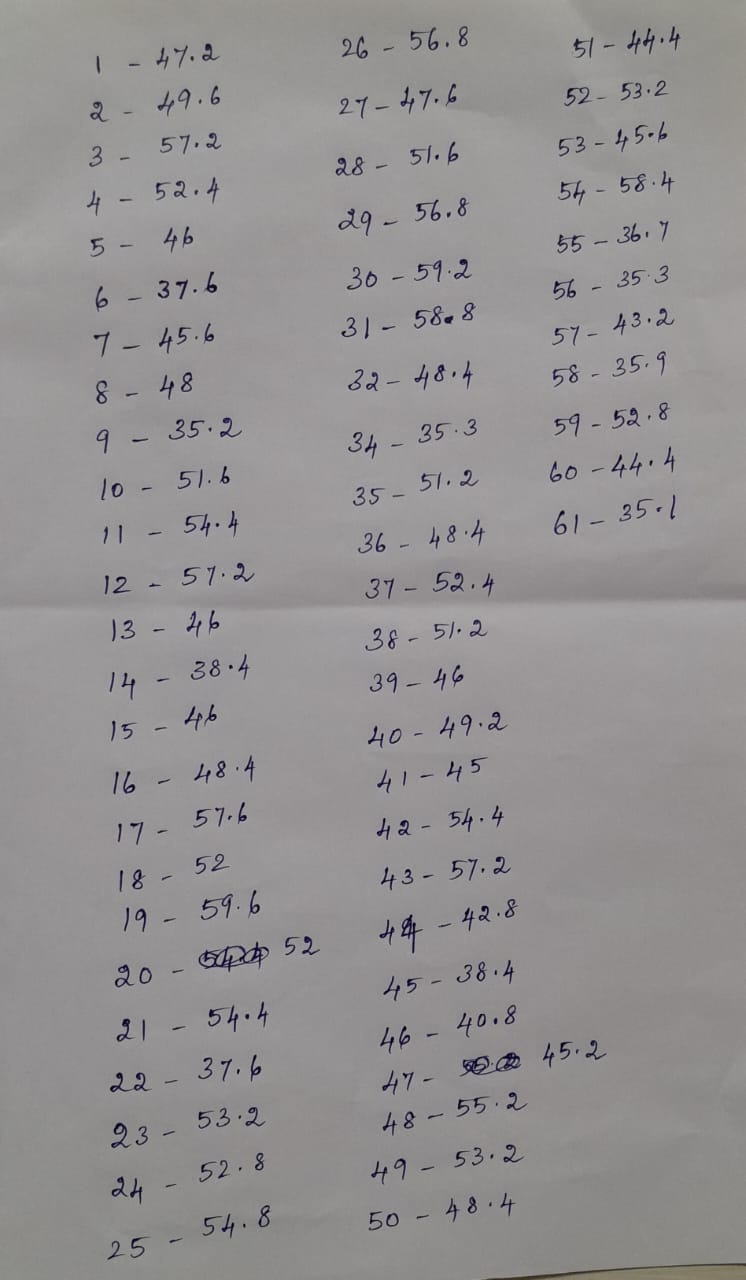 1 - 47.2
2 - 49.6
3 - 57.2
4 - 52.4
5 - 46
6 - 37.6
7 - 45.6
8 - 48
9 - 35.2
10 - 51.6
11 - 54.4
12 - 57.2
13 - 46
14 - 38.4
15 - 46
16 - 48.4
17 - 57.6
18 - 52
19 - 59.6
20 - 52
21 - 54.4
22 - 37.6
23 - 53.2
24 - 52.8
25 - 54.8
26 - 56.8
27 - 47.6
28 - 51.6
29 - 56.8
30 - 59.2
31 - 58.8
32 - 48.4
34 - 35.3
35 - 51.2
36 - 48.4
37 - 52.4
38 - 51.2
39 - 46
40 - 49.2
41 - 45
42 - 54.4
43 - 57.2
44 - 42.8
45 - 38.4
46 - 40.8
47 - 45.2
48 - 55.2
49 - 53.2
50 - 48.4
51 - 44.4
52 - 53.2
53 - 45.6
54 - 58.4
55 - 36.7
56 - 35.3
57 - 43.2
58 - 35.9
59 - 52.8
60 - 44.4
61 - 35.1